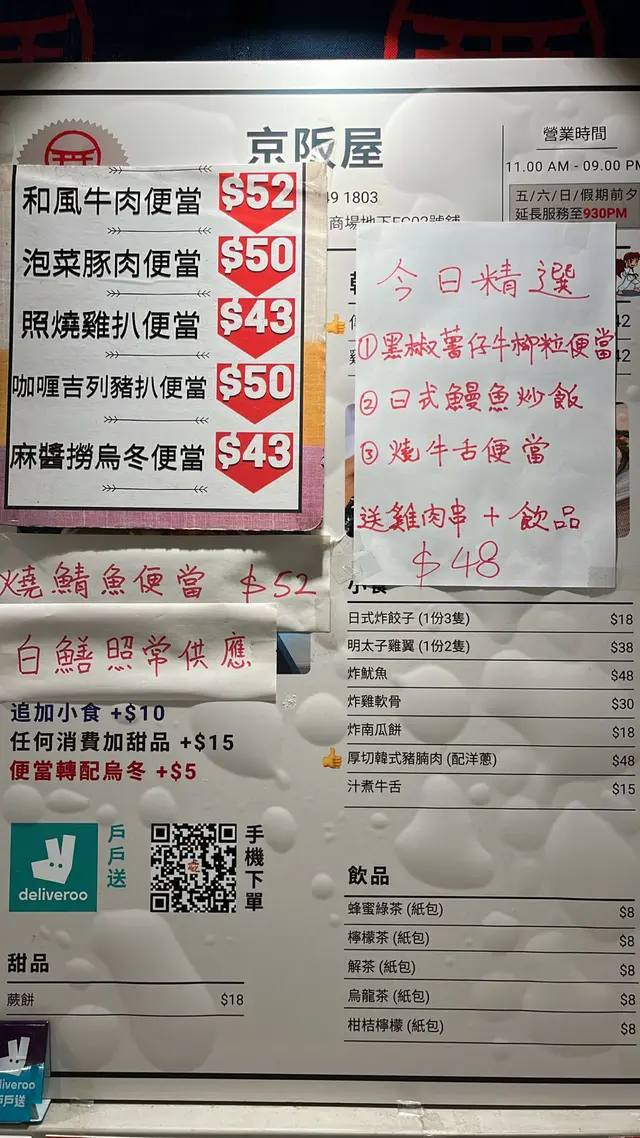 京阪屋
營業時間
11.00 AM - 09.00 PM
五/六/日/假期前夕
延長服務至930PM
49 1803
商場地下
和風牛肉便當 $52
泡菜豚肉便當 $50
照燒雞扒便當 $43
咖喱吉列豬扒便當 $50
麻醬撈烏冬便當 $43
燒鯖魚便當 $52
白鱔照常供應
今日精選
①黑椒薯仔牛柳粒便當
②日式鰻魚炒飯
③燒牛舌便當
送雞肉串+飲品
$48
42
42
小食
日式炸餃子 (1份3隻) $18
明太子雞翼 (1份2隻) $38
炸魷魚 $48
炸雞軟骨 $30
炸南瓜餅 $18
厚切韓式豬腩肉 (配洋蔥) $48
汁煮牛舌 $15
追加小食 +$10
任何消費加甜品 +$15
便當轉配烏冬 +$5
deliveroo
戶戶送
手機下單
甜品
蕨餅 $18
飲品
蜂蜜綠茶 (紙包) $8
檸檬茶 (紙包) $8
解茶 (紙包) $8
烏龍茶 (紙包) $8
柑桔檸檬 (紙包) $8
liveroo
戶送